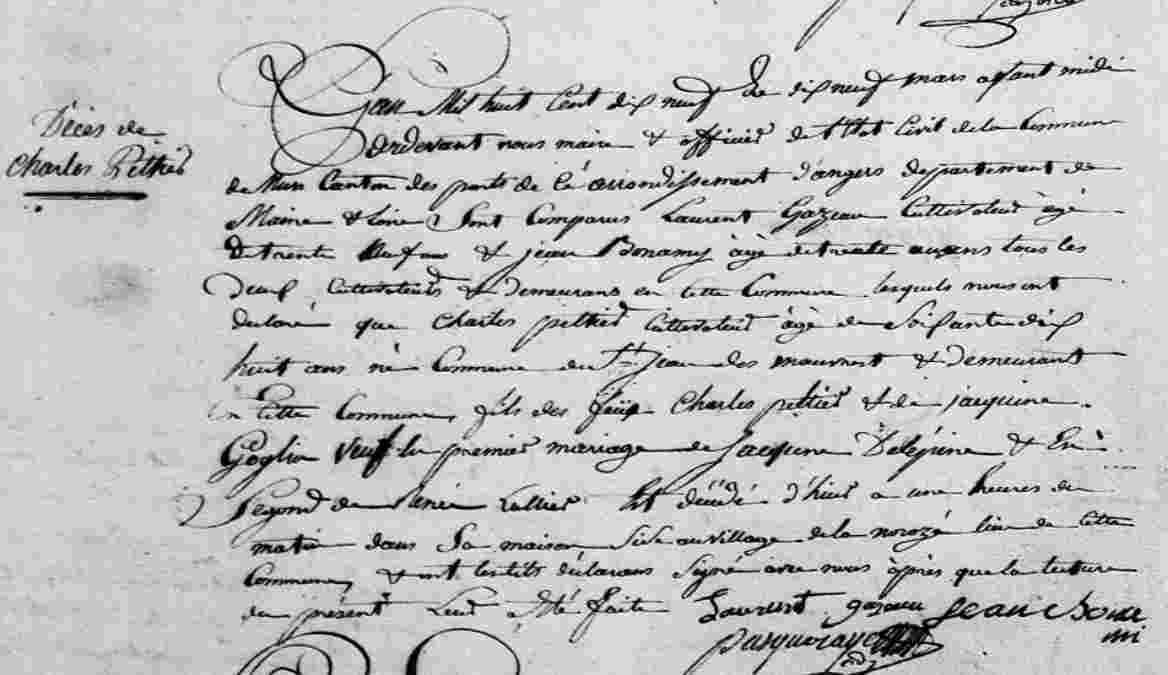 Décès de
Charles Peltier
L'an Mil huit Cent dix neuf Le dix neuf mars avant midi
pardevant nous maire & officier de l'Etat Civil de la Commune
de Mur Canton des ponts de Cé arrondissement d'angers departement de
Maine & Loire Sont Comparus Laurent Gazeau Cultivateur âgé
de trente neuf ans & jean Bonamy âgé de trente ans tous les
deux Cultivateurs & demeurans en Cette Commune lesquels nous ont
declaré que Charles peltier Cultivateur âgé de Soixante dix
huit ans né Commune de St jean des mauvrest & demeurant
en Cette Commune, fils des feüs Charles peltier & de jacquine
Goglin veuf en premier mariage de Jacquine Delépine & En
Segond de Renée Lallier Est décédé d'hier a une heures du
matin dans Sa maison Sise au village de la noroze lieu de Cette
Commune, & ont lesdits déclarans Signé avec nous après que la lecture
du présent Leur a été faite Laurent gazeau jean Bona
mi